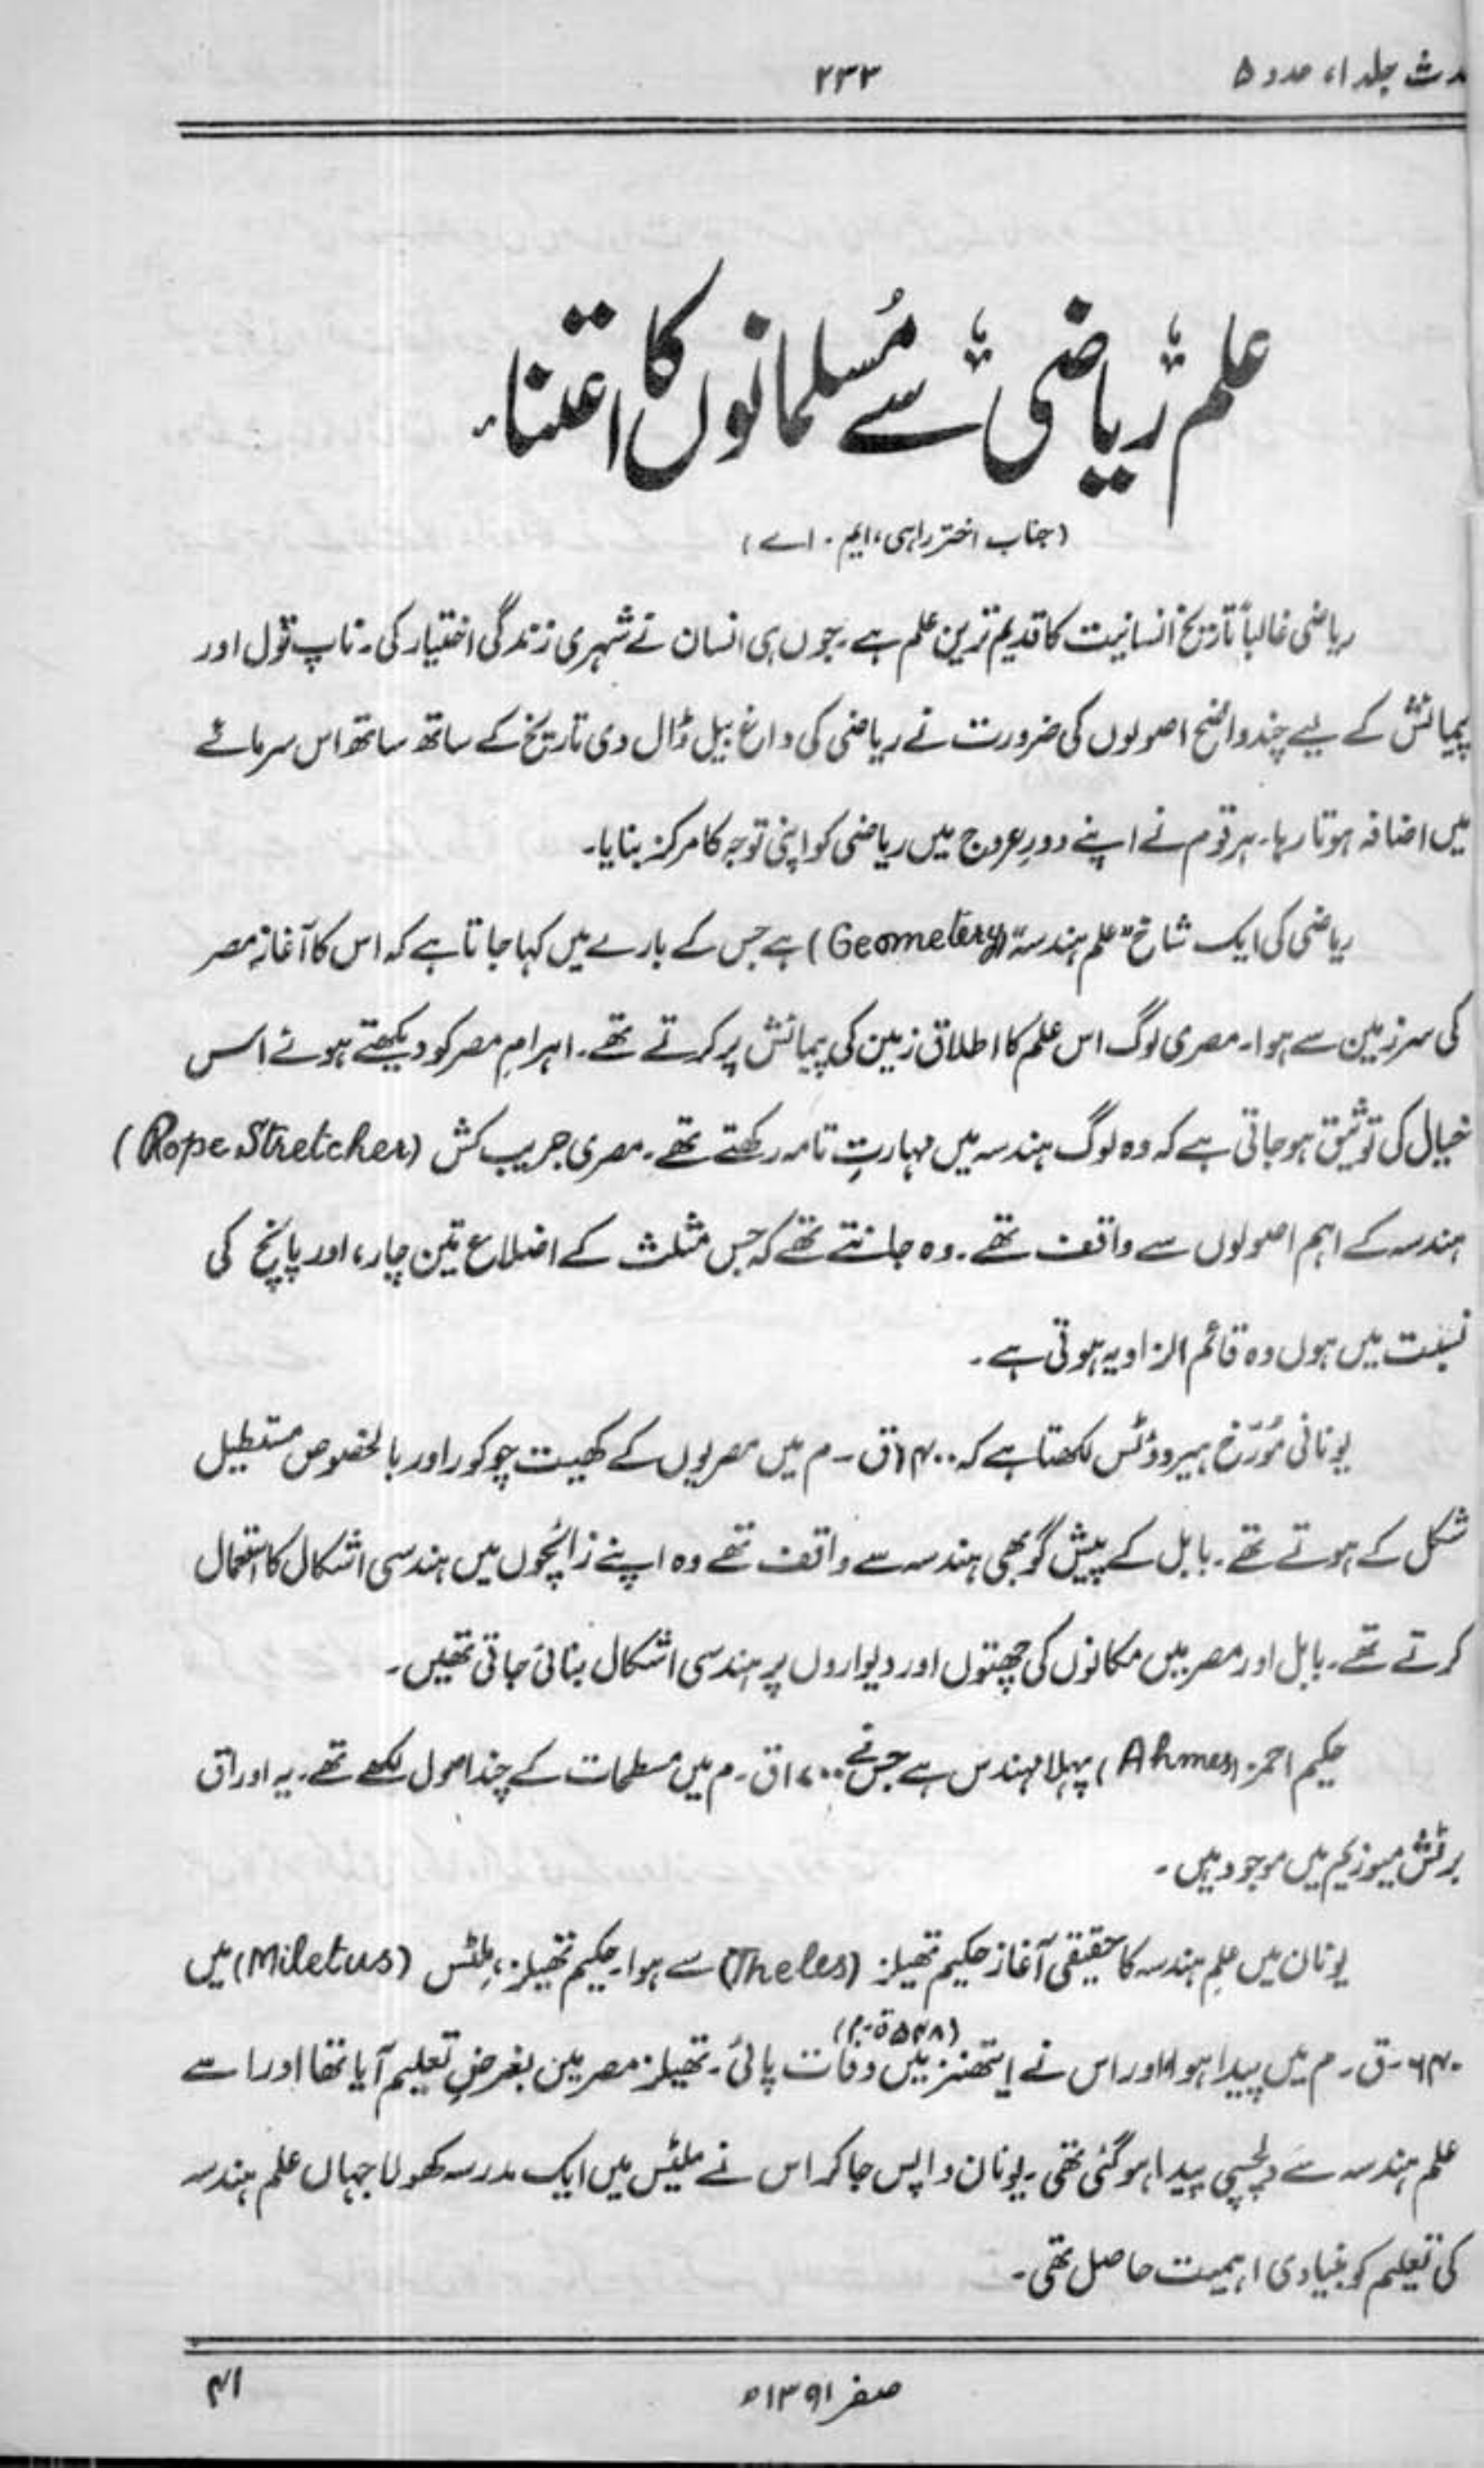 دث جلد ۱، عدد ۵
۲۳۳
علم ”ریاضی“ سے مُسلمانوں کا اعتناء
(جناب اختر راہی، ایم۔ اے)
ریاضی غالباً تاریخ انسانیت کا قدیم ترین علم ہے۔ جوں ہی انسان نے شہری زندگی اختیار کی۔ ناپ تول اور
پیمائش کے لیے چند واضح اصولوں کی ضرورت نے ریاضی کی داغ بیل ڈال دی تاریخ کے ساتھ ساتھ اس سرمائے
میں اضافہ ہوتا رہا۔ ہر قوم نے اپنے دورِ عروج میں ریاضی کو اپنی توجہ کا مرکز بنایا۔
ریاضی کی ایک شاخ ”علم ہندسہ“ (Geometery) ہے جس کے بارے میں کہا جاتا ہے کہ اس کا آغاز مصر
کی سرزمین سے ہوا۔ مصری لوگ اس علم کا اطلاق زمین کی پیمائش پر کرتے تھے۔ اہرامِ مصر کو دیکھتے ہوئے اس
خیال کی توثیق ہو جاتی ہے کہ وہ لوگ ہندسہ میں مہارتِ تامہ رکھتے تھے۔ مصری جریب کش (Rope Stretcher)
ہندسہ کے اہم اصولوں سے واقف تھے۔ وہ جانتے تھے کہ جس مثلث کے اضلاع تین چار، اور پانچ کی
نسبت میں ہوں وہ قائم الزاویہ ہوتی ہے۔
یونانی مُورّخ ہیروڈٹس لکھتا ہے کہ ۱۴۰۰ق۔م میں مصریوں کے کھیت چوکور اور بالخصوص مستطیل
شکل کے ہوتے تھے۔ بابل کے پیش گو بھی ہندسہ سے واقف تھے وہ اپنے زائچوں میں ہندسی اشکال کا استعمال
کرتے تھے۔ بابل اور مصر میں مکانوں کی چھتوں اور دیواروں پر ہندسی اشکال بنائی جاتی تھیں۔
حکیم احمز (Ahmes) پہلا مہندس ہے جس نے ۱۷۰۰ق۔م میں مسطحات کے چند اصول لکھے تھے۔ یہ اوراق
برٹش میوزیم میں موجود ہیں۔
یونان میں علم ہندسہ کا حقیقی آغاز حکیم تھیلز (Theles) سے ہوا۔ حکیم تھیلز، مِلٹس (Miletus) میں
۶۴۰۔ق۔م میں پیدا ہوا اور اس نے ایتھنز میں (۵۴۸ق۔م) وفات پائی۔ تھیلز مصر میں بغرضِ تعلیم آیا تھا اور اسے
علم ہندسہ سے دلچسپی پیدا ہو گئی تھی۔ یونان واپس جا کر اس نے ملیٹس میں ایک مدرسہ کھولا جہاں علم ہندسہ
کی تعلیم کو بنیادی اہمیت حاصل تھی۔
صفر ۱۳۹۱ھ
۴۱